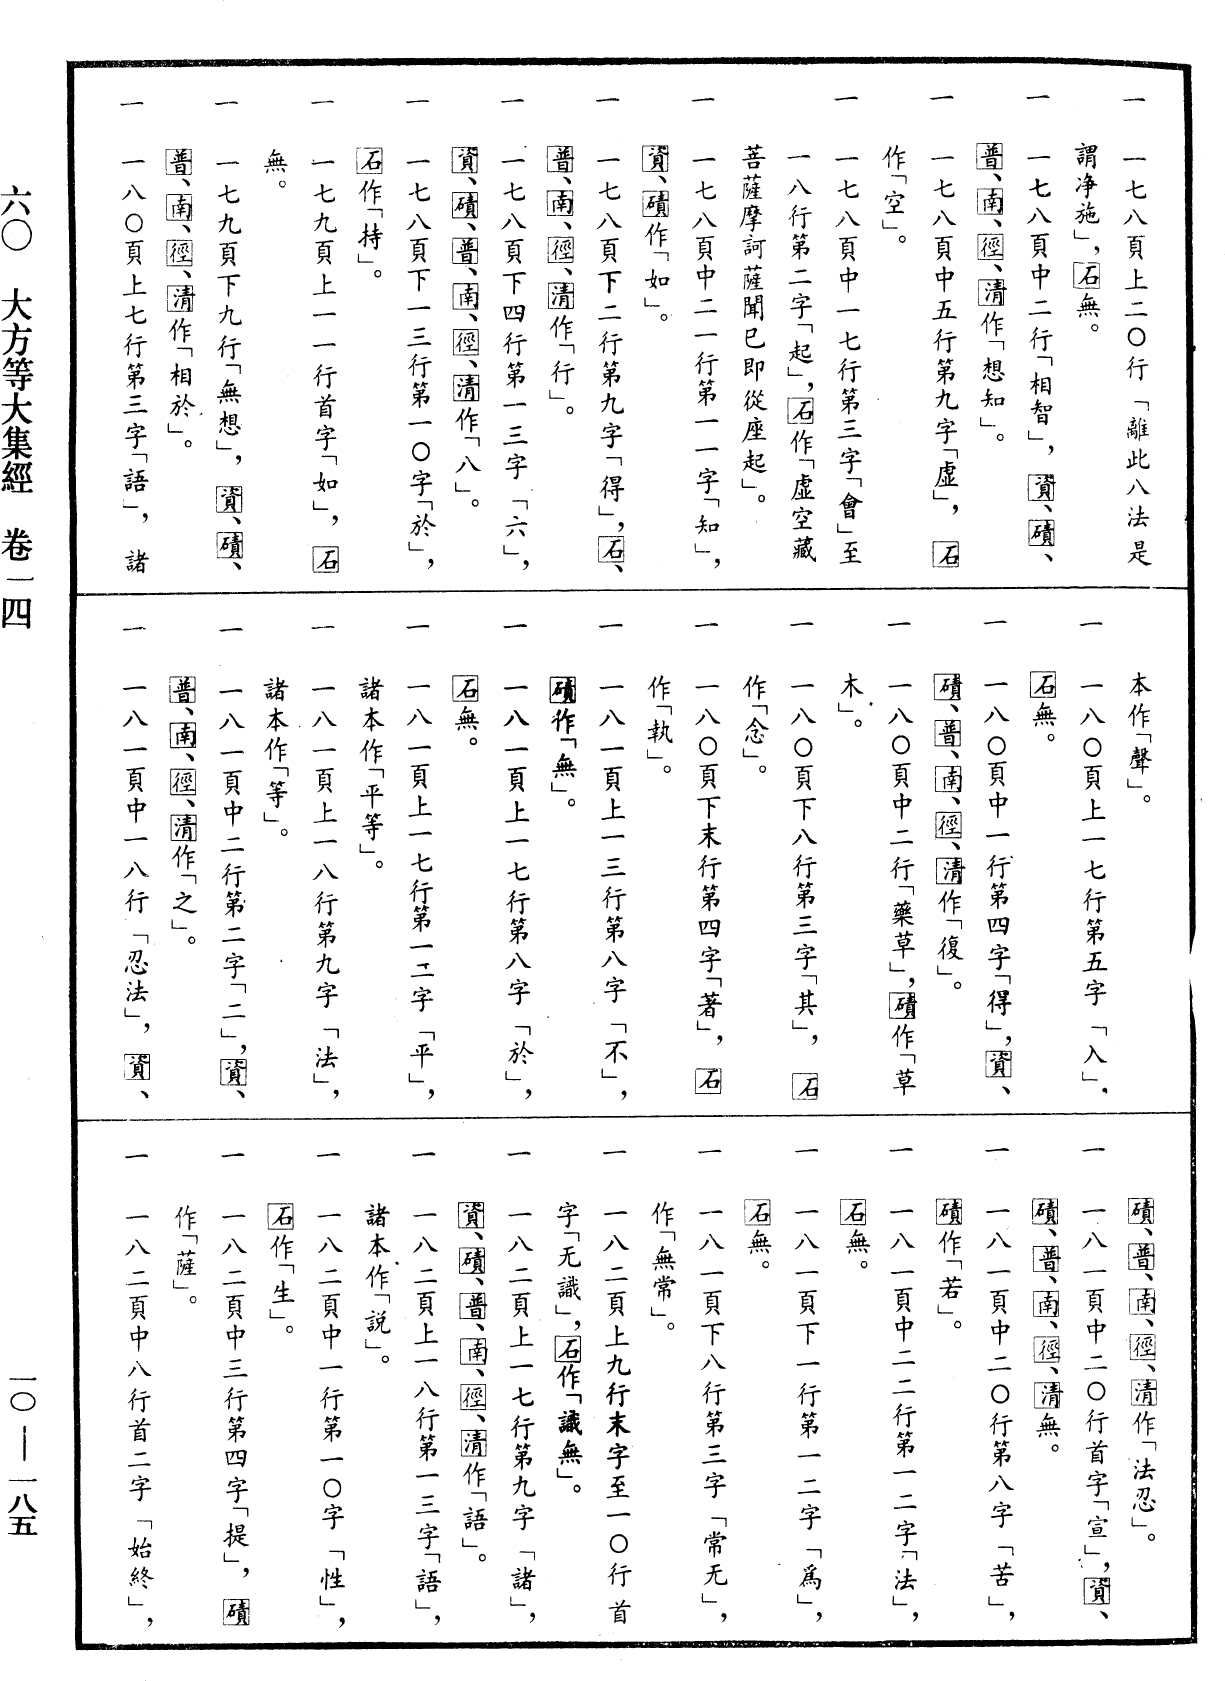 一　一七八頁上二〇行「離此八法是
謂净施」，石無。
一　一七八頁中二行「相智」，資、磧、
普、南、徑、清作「想知」。
一　一七八頁中五行第九字「虛」，石
作「空」。
一　一七八頁中一七行第三字「會」至
一八行第二字「起」，石作「虛空藏
菩薩摩訶薩聞已即從座起」。
一　一七八頁中二一行第一一字「知」，
資、磧作「如」。
一　一七八頁下二行第九字「得」，石、
普、南、徑、清作「行」。
一　一七八頁下四行第一三字「六」，
資、磧、普、南、徑、清作「八」。
一　一七八頁下一三行第一〇字「於」，
石作「持」。
一　一七九頁上一一行首字「如」，石
無。
一　一七九頁下九行「無想」，資、磧、
普、南、徑、清作「相於」。
一　一八〇頁上七行第三字「語」，諸
本作「聲」。
一　一八〇頁上一七行第五字「入」，
石無。
一　一八〇頁中一行第四字「得」，資、
磧、普、南、徑、清作「復」。
一　一八〇頁中二行「藥草」，磧作「草
木」。
一　一八〇頁下八行第三字「其」，石
作「念」。
一　一八〇頁下末行第四字「著」，石
作「執」。
一　一八一頁上一三行第八字「不」，
磧作「無」。
一　一八一頁上一七行第八字「於」，
石無。
一　一八一頁上一七行第一二字「平」，
諸本作「平等」。
一　一八一頁上一八行第九字「法」，
諸本作「等」。
一　一八一頁中二行第二字「二」，資、
普、南、徑、清作「之」。
一　一八一頁中一八行「忍法」，資、
磧、普、南、徑、清作「法忍」。
一　一八一頁中二〇行首字「宣」，資、
磧、普、南、徑、清無。
一　一八一頁中二〇行第八字「苦」，
磧作「若」。
一　一八一頁中二二行第一二字「法」，
石無。
一　一八一頁下一行第一二字「爲」，
石無。
一　一八一頁下八行第三字「常无」，
作「無常」。
一　一八二頁上九行末字至一〇行首
字「无識」，石作「識無」。
一　一八二頁上一七行第九字「諸」，
資、磧、普、南、徑、清作「語」。
一　一八二頁上一八行第一三字「語」，
諸本作「説」。
一　一八二頁中一行第一〇字「性」，
石作「生」。
一　一八二頁中三行第四字「提」，磧
作「薩」。
一　一八二頁中八行首二字「始終」，
六〇　大方等大集經　卷一四
一〇—一八五